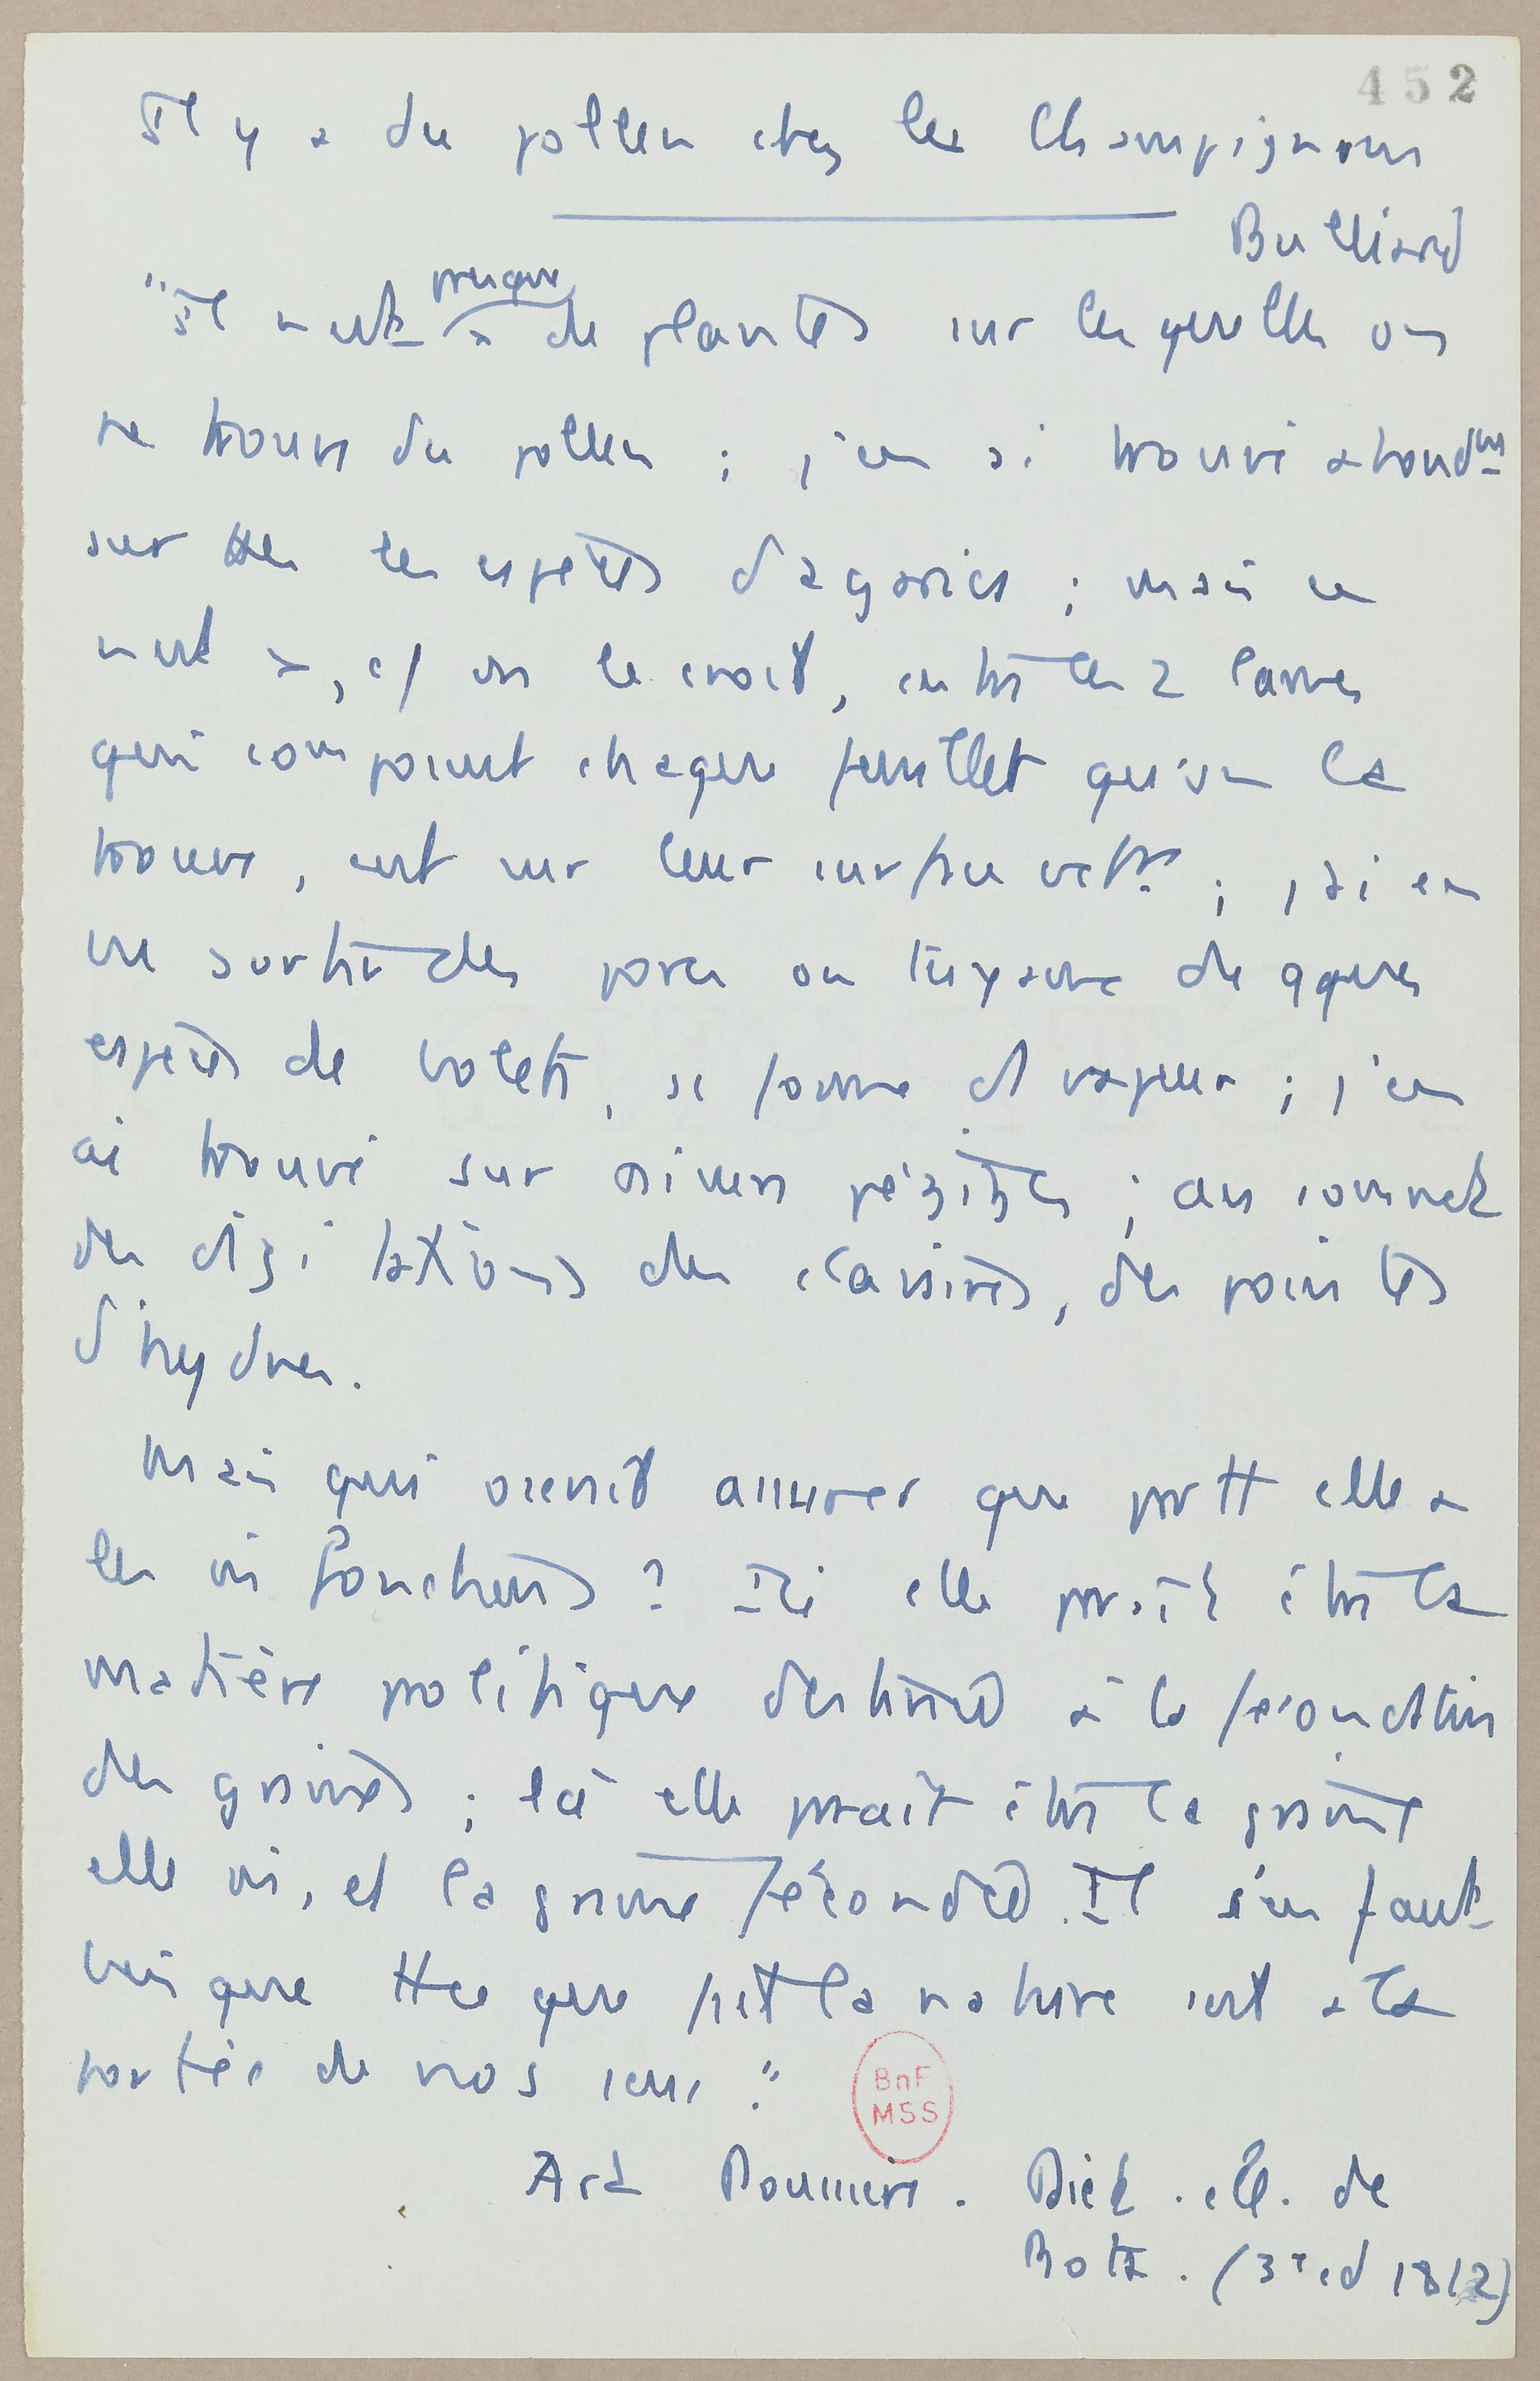 452
Il y a du pollen chez les Champignons
Bulliard
presque
"Il n'est pas de plantes sur lesquelles on
ne trouve du pollen ; j'en ai trouvé abondmt
sur les espèces d'agarics ; mais ce
n'est pas, on le croit, entre les 2 lames
qui composent chaque feuillet qu'on la
trouve, c'est sur leur surface ; j'ai en
vu sortir des pores ou tuyaux de qques
espèces de bolets, se forme de vapeur ; j'en
ai trouvé sur divers pézizes ; au sommet
des digitations des clavaires, des pointes
d'hydnes.
Mais qui oserait assurer que partt elle a
les fonctions ? Ici elle paraît être la
matière prolifique destinée à la fécondation
des graines ; là elle paraît être la graine
elle m., et la graine fécondée. Il s'en faut
bien que tt ce que fait la nature soit à la
portée de nos sens."
BnF
MSS
Art Poussière. Dict. él. de
Bota. (3e éd 1812)